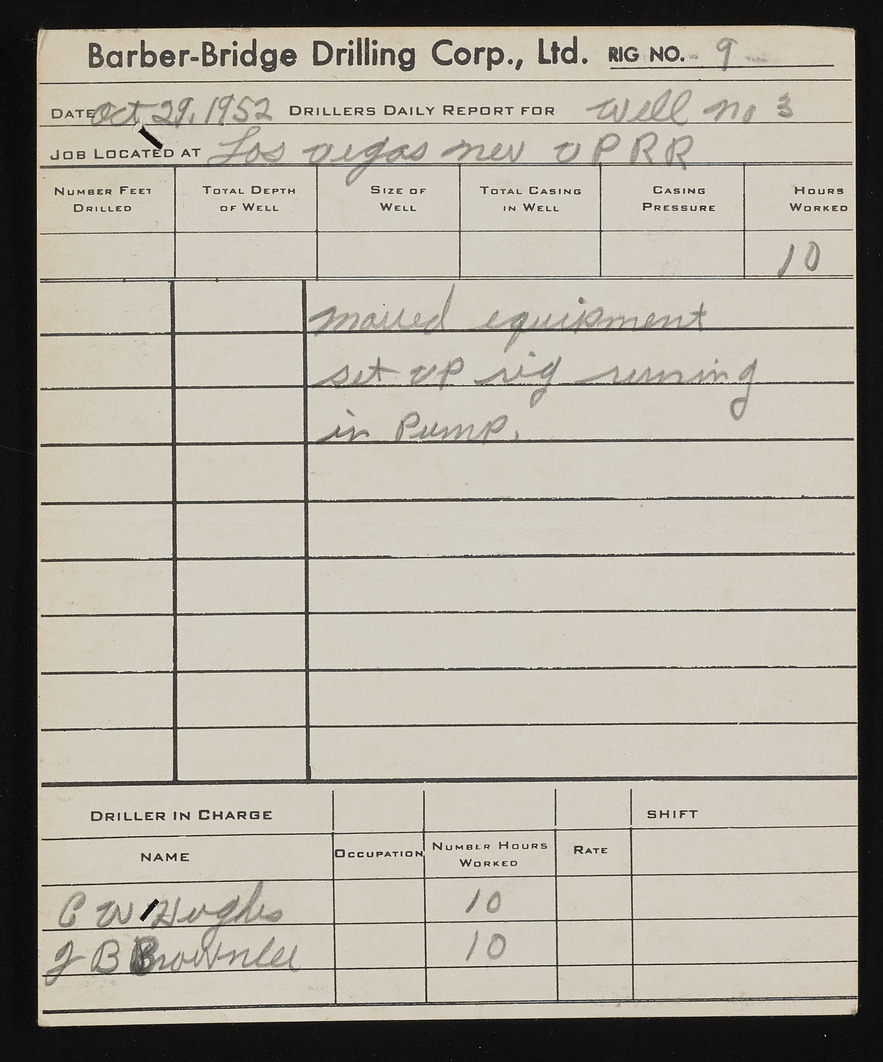 Barber-Bridge Drilling Corp., Ltd. RIG NO. 9
DATE Oct 29, 1952 DRILLERS DAILY REPORT FOR Well no 3
JOB LOCATED AT Los vegas nev UPRR
NUMBER FEET DRILLED TOTAL DEPTH OF WELL SIZE OF WELL TOTAL CASING IN WELL CASING PRESSURE HOURS WORKED
10
moved equipment
set up rig running
in Pump.
DRILLER IN CHARGE SHIFT
NAME OCCUPATION NUMBER HOURS WORKED RATE
C W Hughes 10
J B Brownlee 10